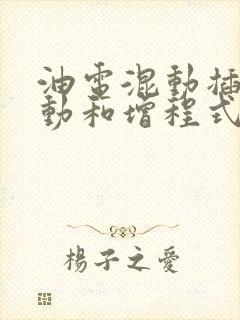 油电混動插
動和增程式
楊子之愛